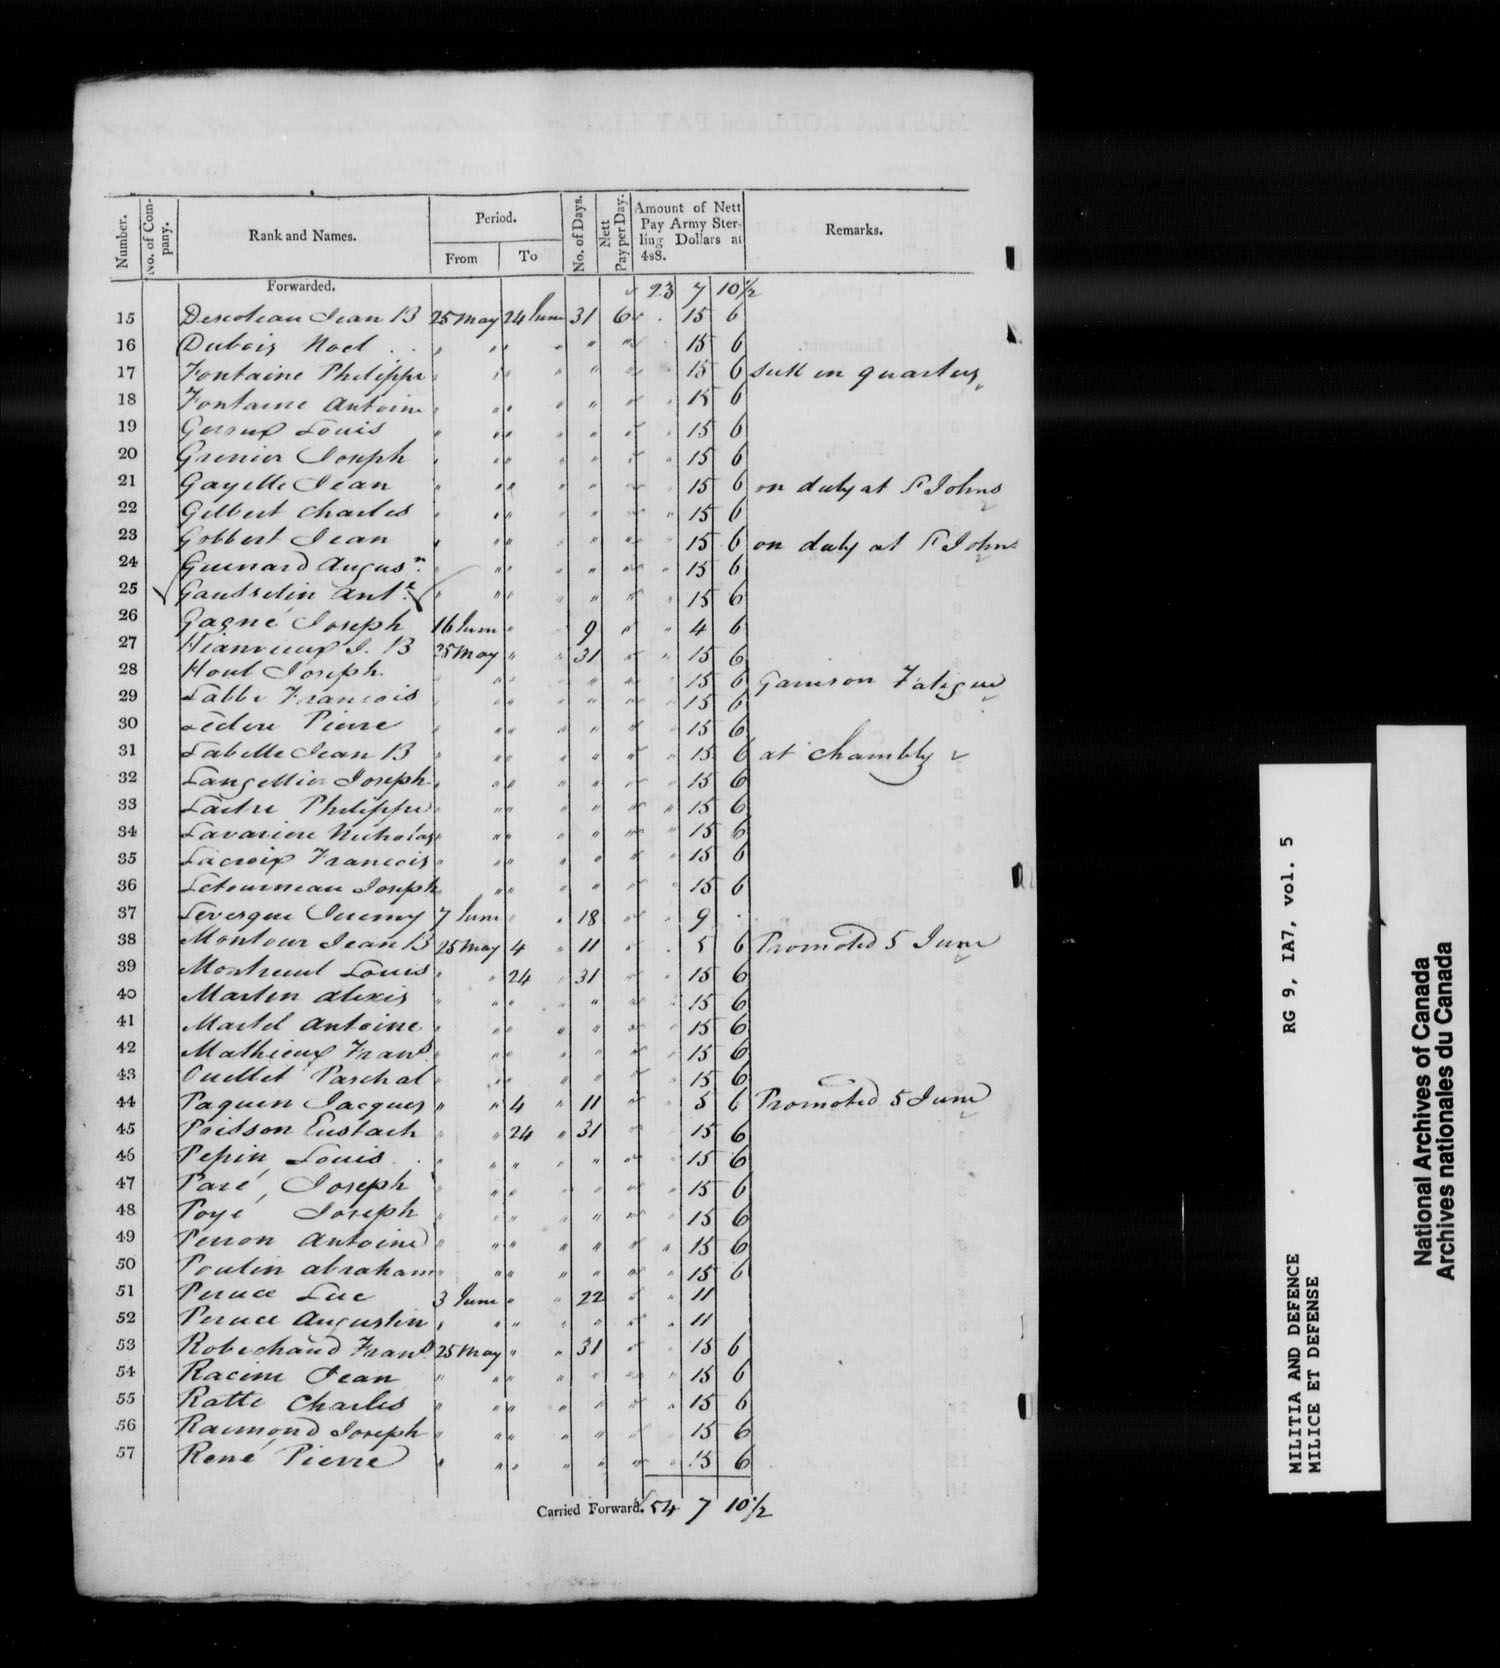 Number.
No. of Company.
Rank and Names.
Period.
From
To
No. of Days.
Nett Pay per Day.
Amount of Nett Pay Army Sterling Dollars at 4s8.
Remarks.
Forwarded. 23 7 10½
15 Jean B 25 May 24 June 31 6 15 6
16 Dubois Noel " " " " " " " 15 6
17 Fontaine Philippe " " " " " " " 15 6 sick in quarters
18 Fontaine Antoine " " " " " " " 15 6
19 Geroux Louis " " " " " " " 15 6
20 Grenier Joseph " " " " " " " 15 6
21 Gayette Jean " " " " " " " 15 6 on duty at St Johns
22 Gilbert Charles " " " " " " " 15 6
23 Gobbert Jean " " " " " " " 15 6 on duty at St Johns
24 Guenard Augusn " " " " " " " 15 6
25 Gausselin Ante " " " " " " " 15 6
26 Gagné Joseph 16 June " " 9 " " 4 6
27 J. B 25 May " " 31 " " 15 6
28 Houl Joseph " " " " " " " 15 6 Garrison Fatigue
29 Labbe Francois " " " " " " " 15 6
30 Pierre " " " " " " " 15 6
31 Labelle Jean B " " " " " " " 15 6 at Chambly
32 Langellier Joseph " " " " " " " 15 6
33 Philippe " " " " " " " 15 6
34 Lavariere Nicholas " " " " " " " 15 6
35 Lacroix Francois " " " " " " " 15 6
36 Letourneau Joseph " " " " " " " 15 6
37 Levesque Jeremy 7 June " " 18 " " 9
38 Montour Jean B 25 May 4 " 11 " " 5 6 Promoted 5 June
39 Montreuil Louis " " 24 " 31 " " 15 6
40 Martin Alexis " " " " " " " 15 6
41 Martel Antoine " " " " " " " 15 6
42 Mathieux Frans " " " " " " " 15 6
43 Ouellet Paschal " " " " " " " 15 6
44 Paquin Jacques " " 4 " 11 " " 5 6 Promoted 5 June
45 Poisson Eustach " " 24 " 31 " " 15 6
46 Pepin Louis " " " " " " " 15 6
47 Paré Joseph " " " " " " " 15 6
48 Poyé Joseph " " " " " " " 15 6
49 Perron Antoine " " " " " " " 15 6
50 Poulin Abraham " " " " " " " 15 6
51 Peruce Luc 3 June " " 22 " " 11
52 Peruce Augustin " " " " " " " 11
53 Robichaud Frans 25 May " " 31 " " 15 6
54 Racine Jean " " " " " " " 15 6
55 Ratte Charles " " " " " " " 15 6
56 Raimond Joseph " " " " " " " 15 6
57 René Pierre " " " " " " " 15 6
Carried Forward. 54 7 10½
RG 9, IA7, vol. 5
MILITIA AND DEFENCE
MILICE ET DEFENSE
National Archives of Canada
Archives nationales du Canada